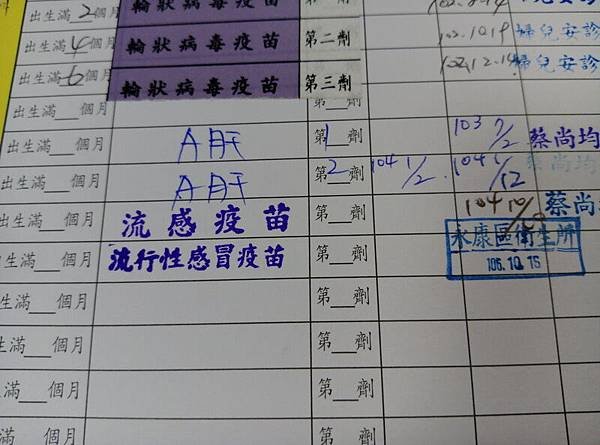 出生滿2個月 輪狀病毒疫苗
出生滿4個月 輪狀病毒疫苗 第二劑 102.10.19 婦兒安診
出生滿6個月 輪狀病毒疫苗 第三劑 102.12.14 婦兒安診
出生滿__個月 第__劑
出生滿__個月 A肝 第1劑 103 7/2 蔡尚均
出生滿__個月 A肝 第2劑 104 1/2 104 1/12 蔡尚均
出生滿__個月 流感疫苗 第__劑 104 10/ 蔡尚
出生滿__個月 流行性感冒疫苗 第__劑 永康區衛生所
105.10.15
生滿__個月 第__劑
生滿__個月 第__劑
生滿__個月 第__劑
生滿__個月 第__劑